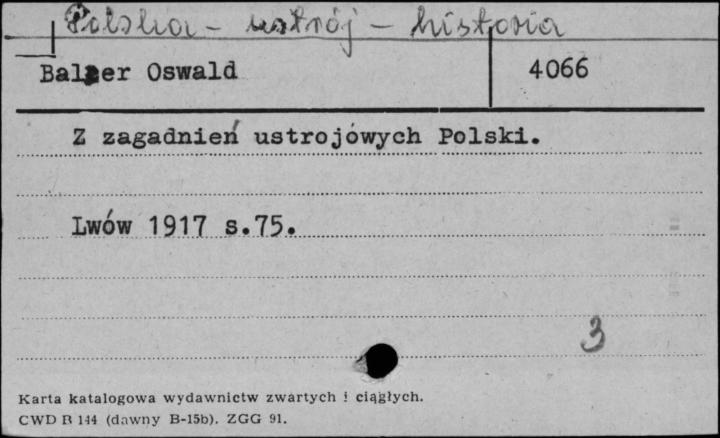 Polska - ustrój - historia
Balzer Oswald 4066
Z zagadnień ustrojówych Polski.
Lwów 1917 s.75.
3
Karta katalogowa wydawnictw zwartych i ciągłych.
CWD B 144 (dawny B-15b). ZGG 91.